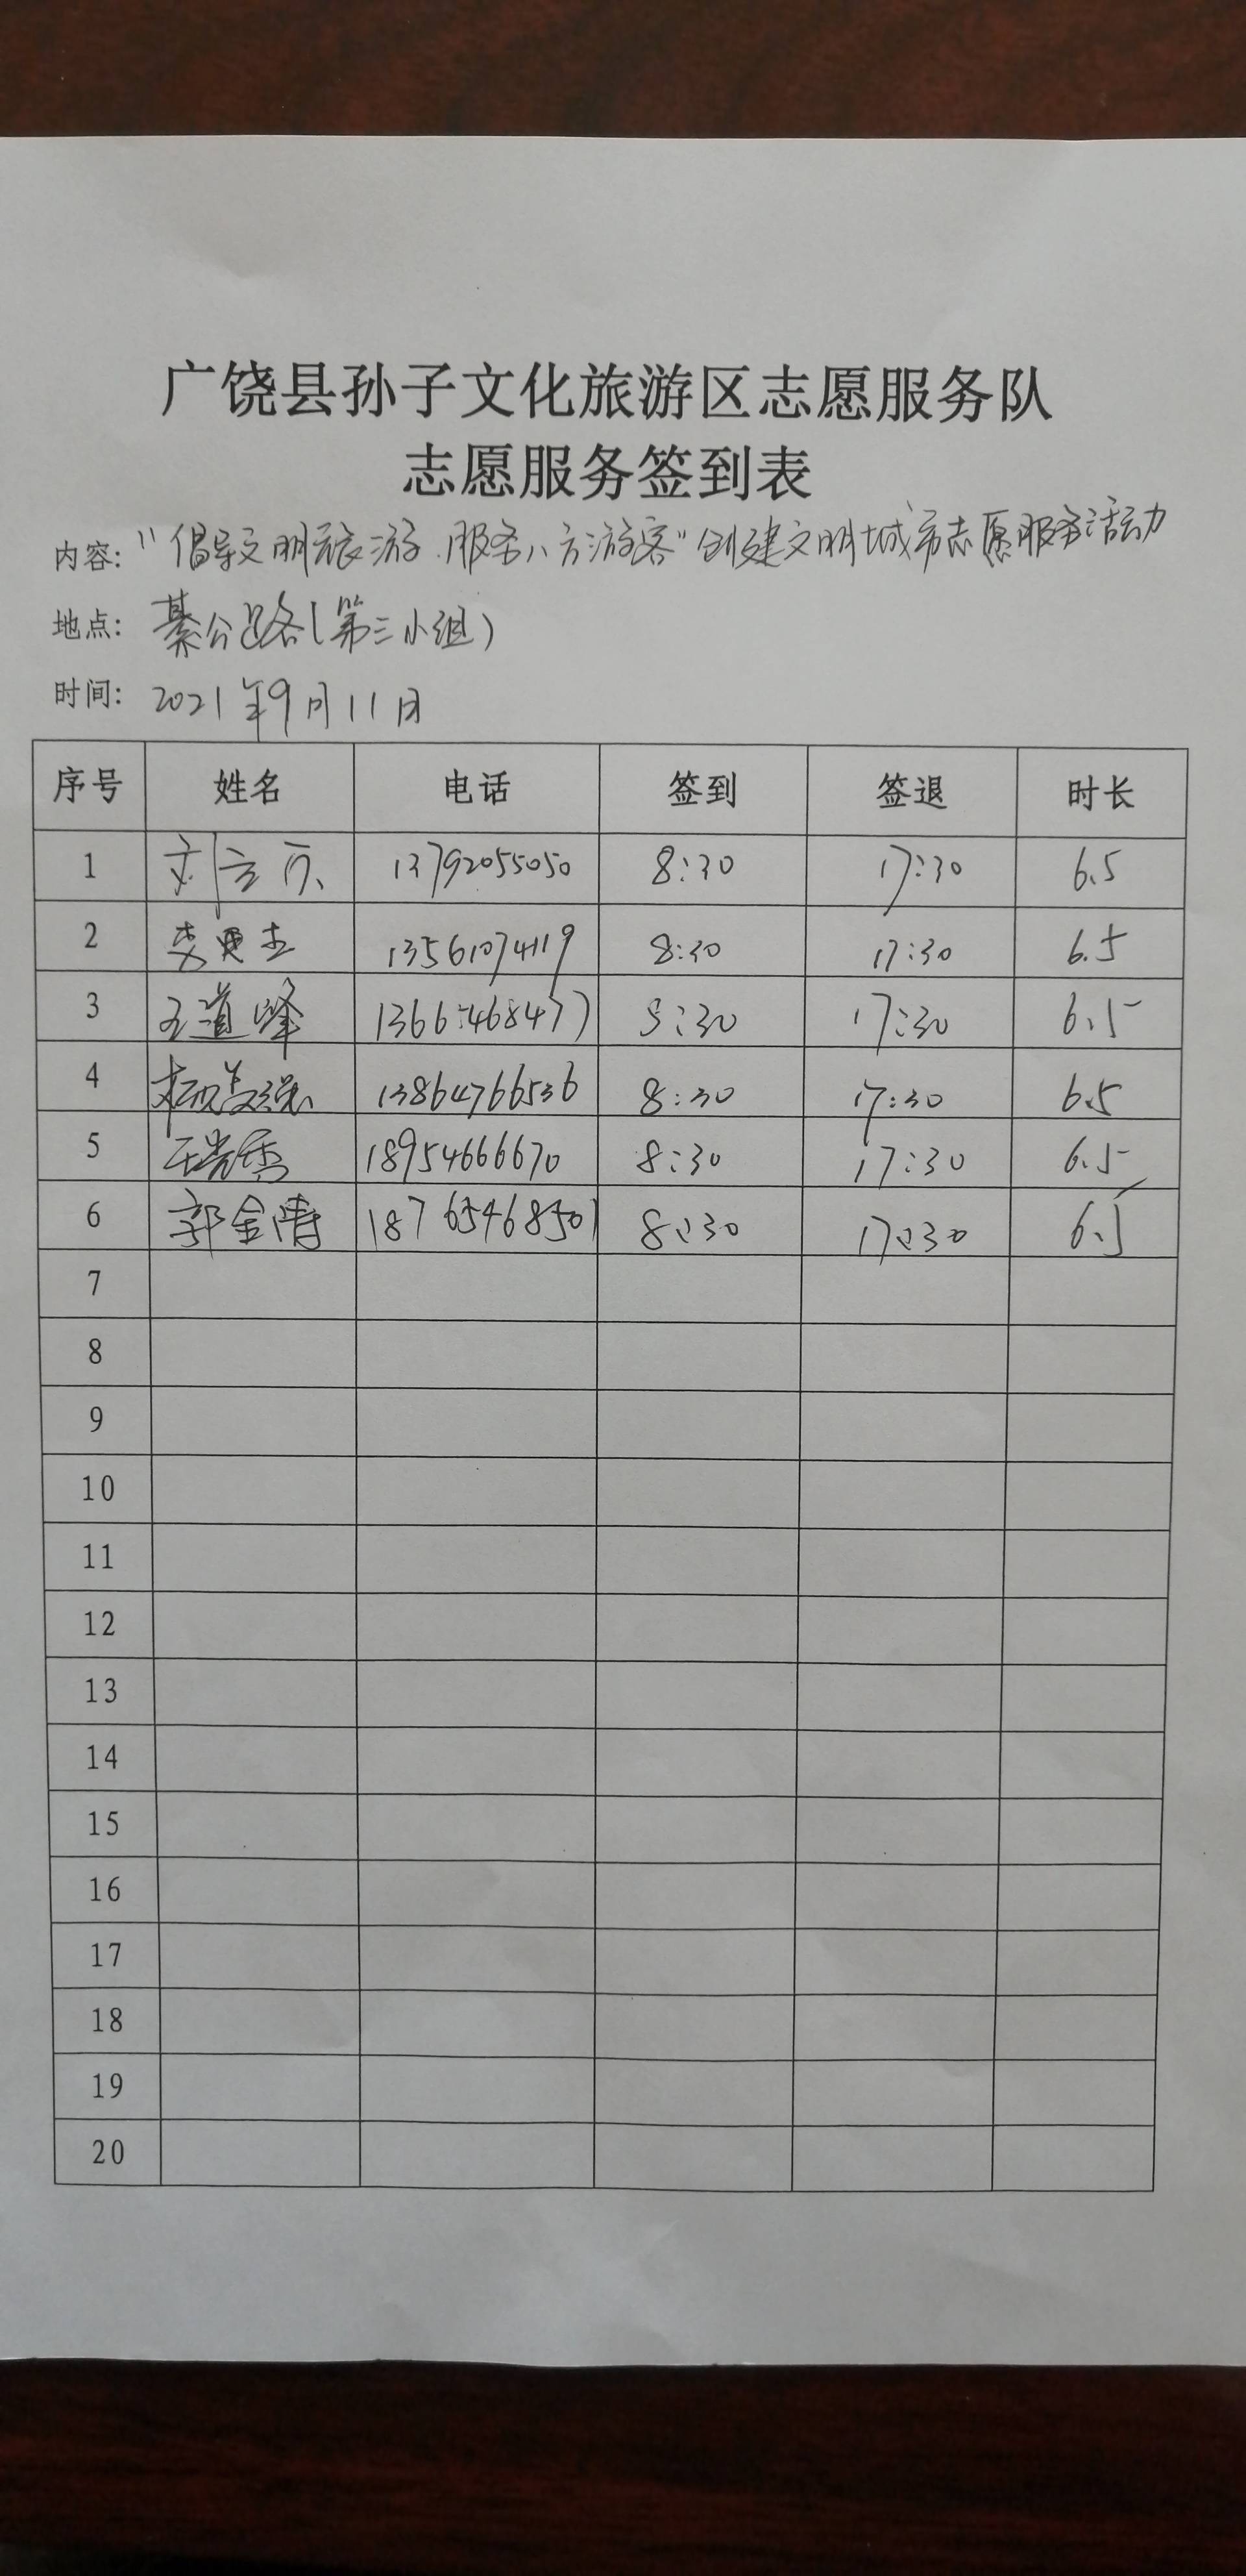 广饶县孙子文化旅游区志愿服务队
志愿服务签到表
内容："倡导文明旅游.服务八方游客"创建文明城市志愿服务活动
地点：綦公路(第三小组)
时间：2021年9月11日
序号 姓名 电话 签到 签退 时长
1 刘立 13792055050 8:30 17:30 6.5
2 13561074119 8:30 17:30 6.5
3 王道峰 8:30 17:30 6.5
4 13864766536 8:30 17:30 6.5
5 18954666670 8:30 17:30 6.5
6 郭金清 18765468501 8:30 17:30 6.5
7
8
9
10
11
12
13
14
15
16
17
18
19
20